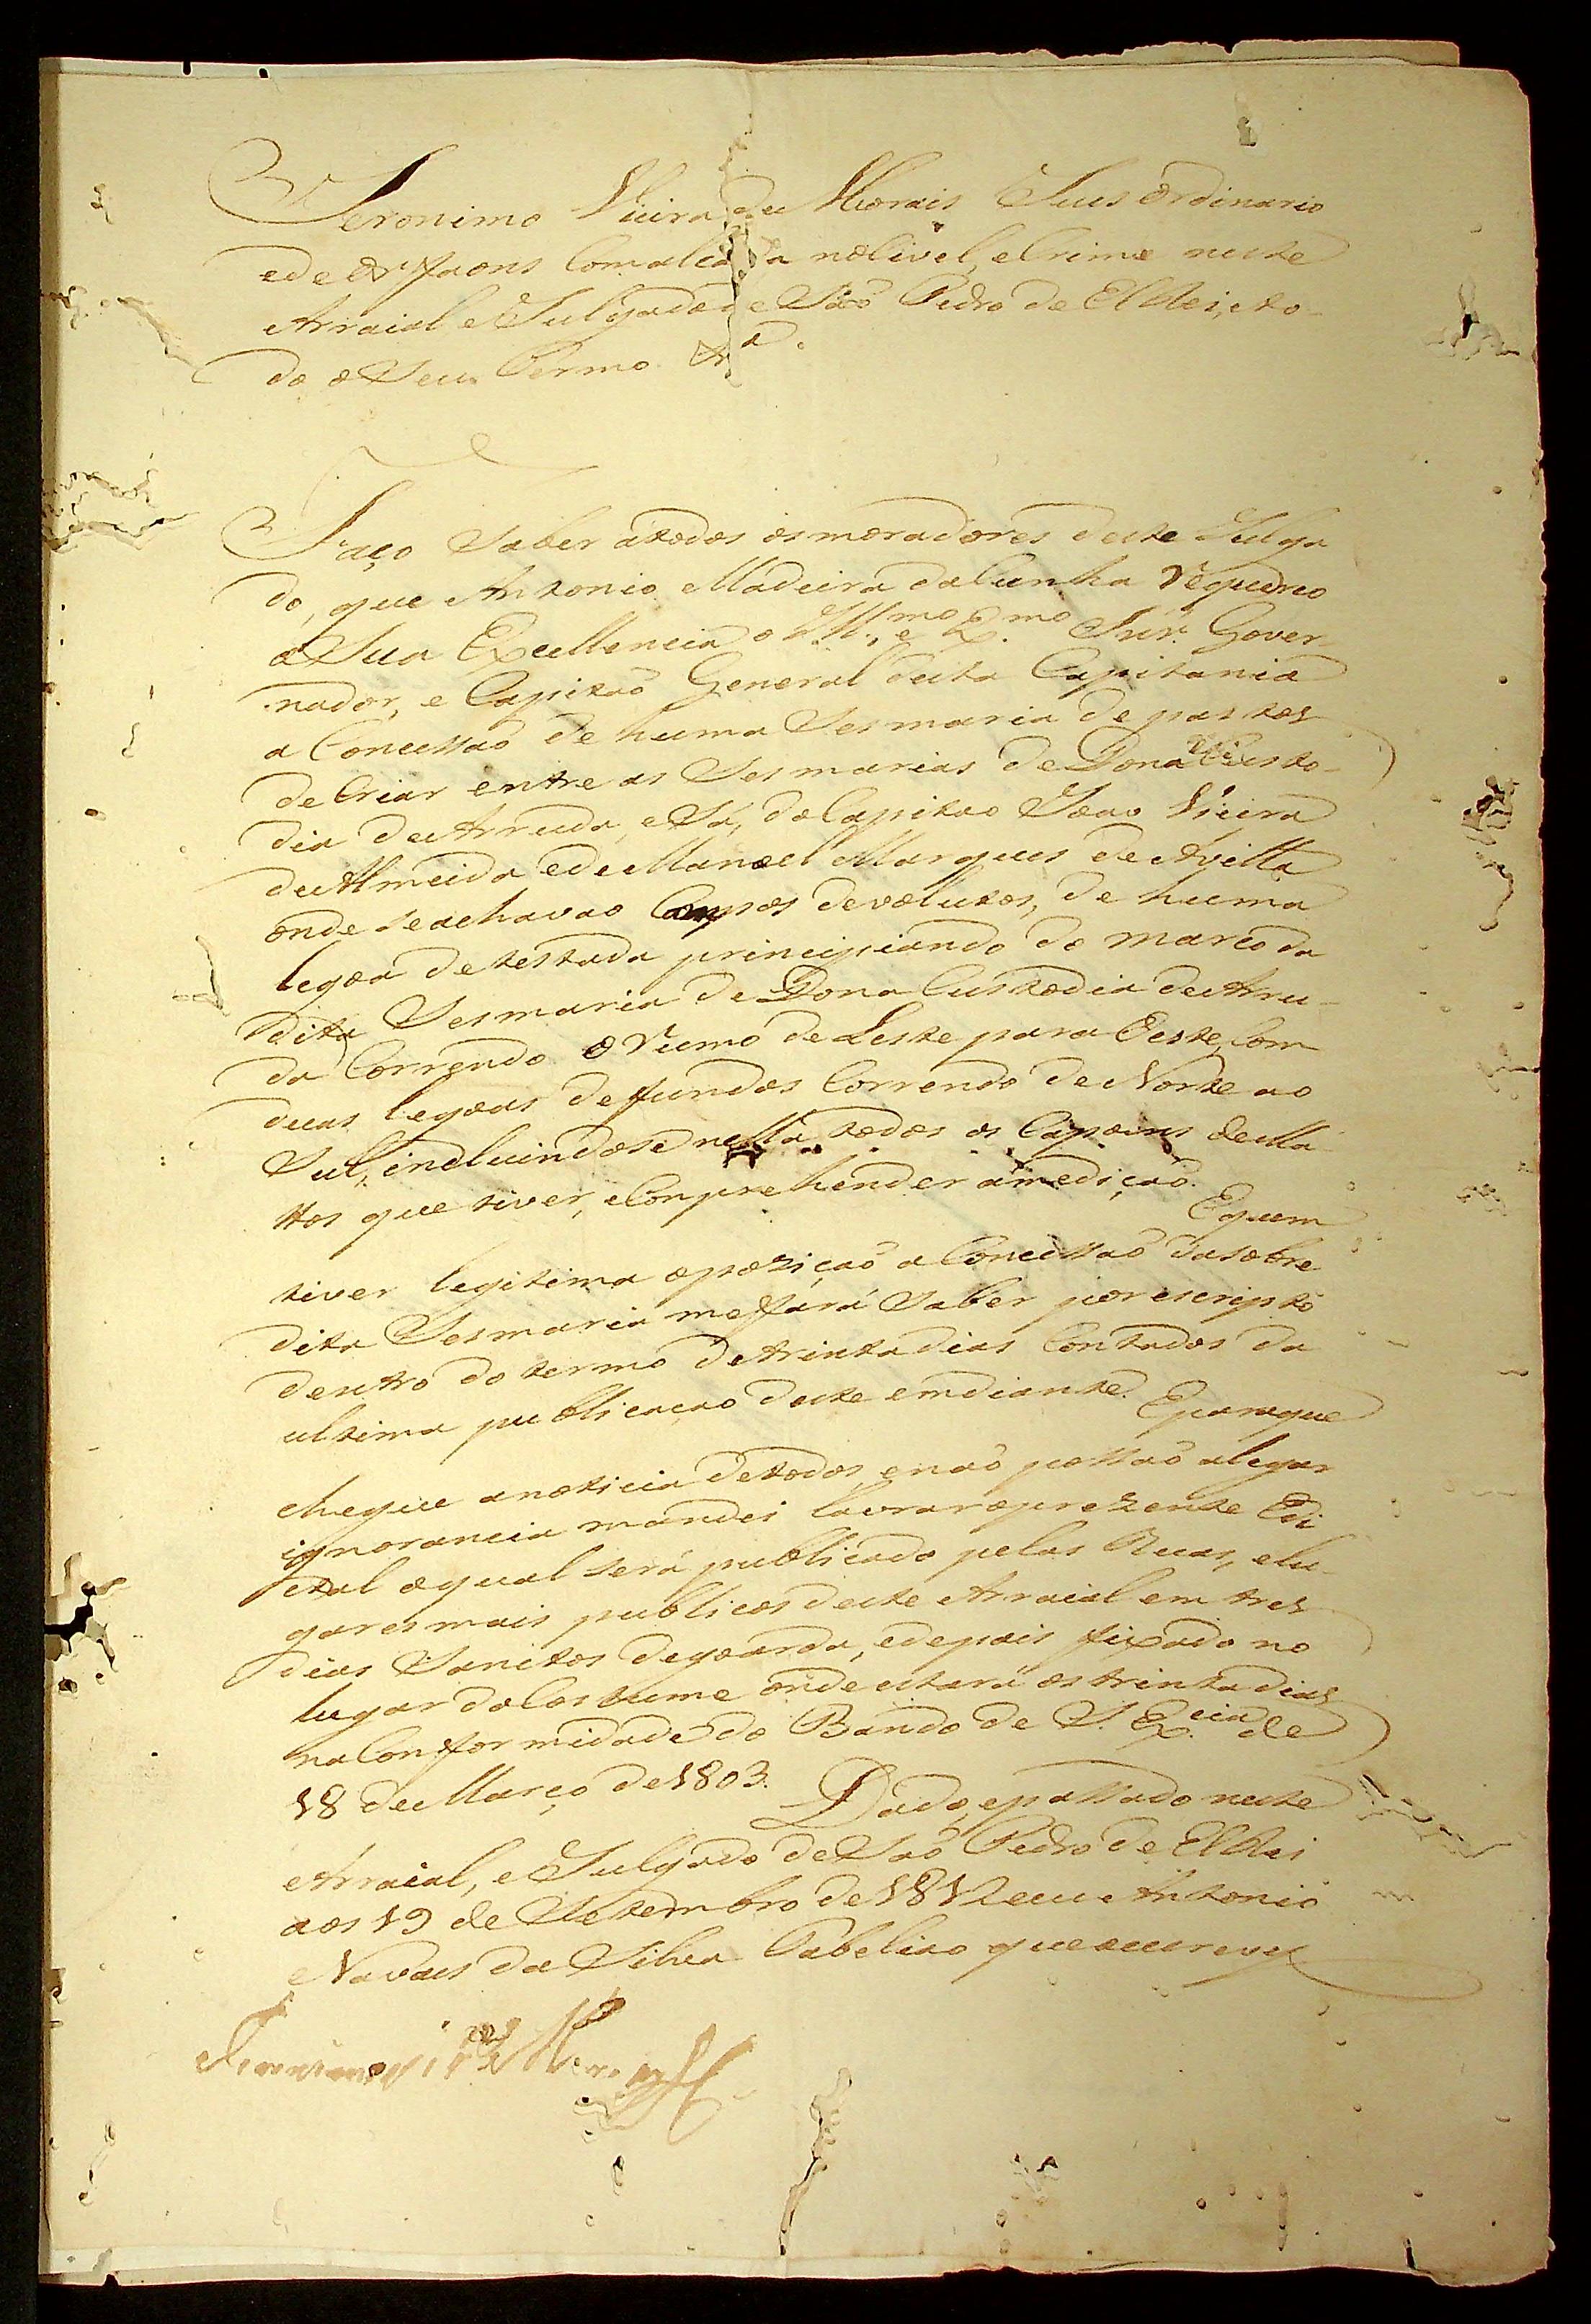 Jeronimo Vieira de Morais Juis Ordinario
e de Orfaons Com alçada no Civel, e Crime neste
Arraial e Julgado de São Pedro de El Rei, e to-
do o Seu Termo &ª.
Faço Saber átodos os moradores deste Julga
do, que Antonio Madeira da Cunha requereo
a Sua Excellencia o Ill.mo e Ex.mo Snr. Gover-
nador, e Capitaõ General desta Capitania
a Concessaõ de huma Sesmaria de pastos
de Criar entre as Sesmarias de Dona Custo-
dia de Arruda, e Sá, do Capitao Joao Vieira
de Almeida e de Manoel Marques de Avilla
onde se achavao Campos devolutos, de huma
legoa de testada principiando do marco da
dita Sesmaria de Dona Custodia de Arru-
da Correndo o rumo de Leste para Oeste, Com
duas legoas de fundos Correndo de Norte ao
Sul, incluindose nella todos os Capoens de Ma
ttos que tiver, e Conprehender a mediçaõ. E quem
tiver legitima opoziçaõ a Concessaõ da sobre
dita Sesmaria me fará Saber por escripto
dentro do termo de trinta dias Contados da
ultima publicaçao deste em diante. E para que
chegue a noticia de todos, e naõ possaõ alegar
ignorancia mandei lavrar o prezente Edi
tal o qual será publicado pelas Ruas, e lu-
gares mais publicos deste Arraial em tres
dias Sanctos de goarda, e depois fixado no
lugar do Costume onde estará os trinta dias
na Conformidade do Bando de S. Ex.cia de
18 de Março de 1803. Dado, e passado neste
Arraial, e Julgado de Saõ Pedro de El Rei
aos 19 de Setembro de 1812 eu Antonio
Navaes da Silva Tabeliao que o escrevy